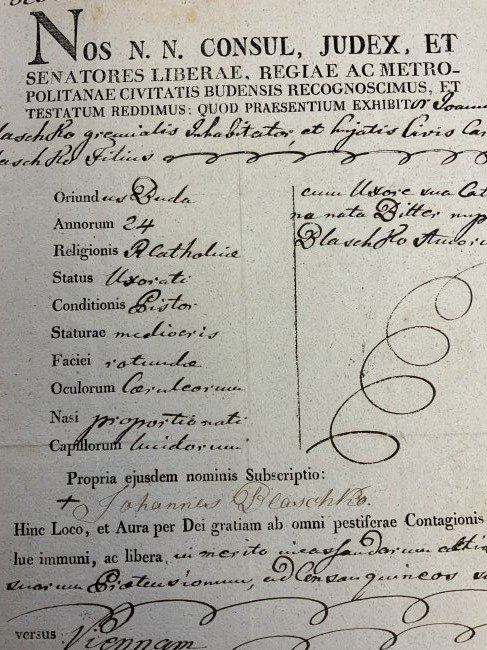 NOS N. N. CONSUL, JUDEX, ET
SENATORES LIBERAE, REGIAE AC METRO-
POLITANAE CIVITATIS BUDENSIS RECOGNOSCIMUS, ET
TESTATUM REDDIMUS: QUOD PRAESENTIUM EXHIBITOR Joann
laschko gremialis Inhabitator, et hujatis Civis Ca
laschko Filius
Oriundus Buda
Annorum 24
Religionis R Catholicae
Status Uxorati
Conditionis Pistor
Staturae mediocris
Faciei rotundae
Oculorum Caeruleorum
Nasi proportionati
Capillorum lucidorum
cum Uxore sua Cat
na nata Bitter nup
Blaschko
Propria ejusdem nominis Subscriptio:
+ Johannes Blaschko
Hinc Loco, et Aura per Dei gratiam ab omni pestiferae Contagionis
lue immuni, ac libera, in merito
suarum Praetensionum, ad Consanguineos
versus Viennam